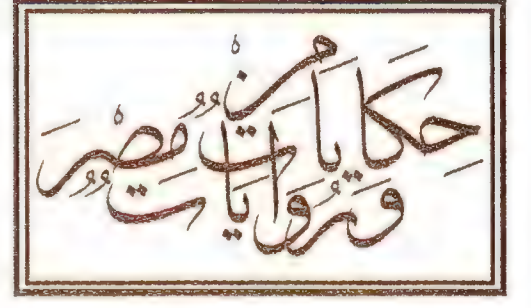 حكايات وروايات من مصر